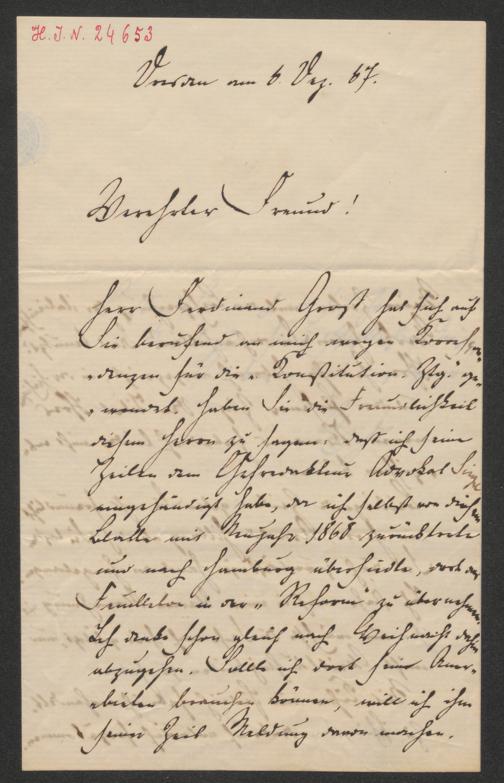 H. I. N. 24653
Dresden am 6. Dez. 67.
Verehrter Freund!
Herr Ferdinand Groß hat sich auf
Sie berufend an mich wegen Korrespon-
denzen für die „Konstitution. Ztg." ge-
wendet. Haben Sie die Freundlichkeit
diesem Herrn zu sagen, daß ich seine
Zeilen dem Chefredakteur Advokat
eingehändigt habe, da ich selbst von diesem
Blatte mit Neujahr 1868 zurücktrete
und nach Hamburg übersiedle, dort das
Feuilleton in der „Reform" zu übernehmen.
Ich denke schon gleich nach Weihnacht dahin
abzugehen. Sollte ich dort seine Aner-
bieten brauchen können, will ich ihm
seiner Zeit Meldung davon machen.